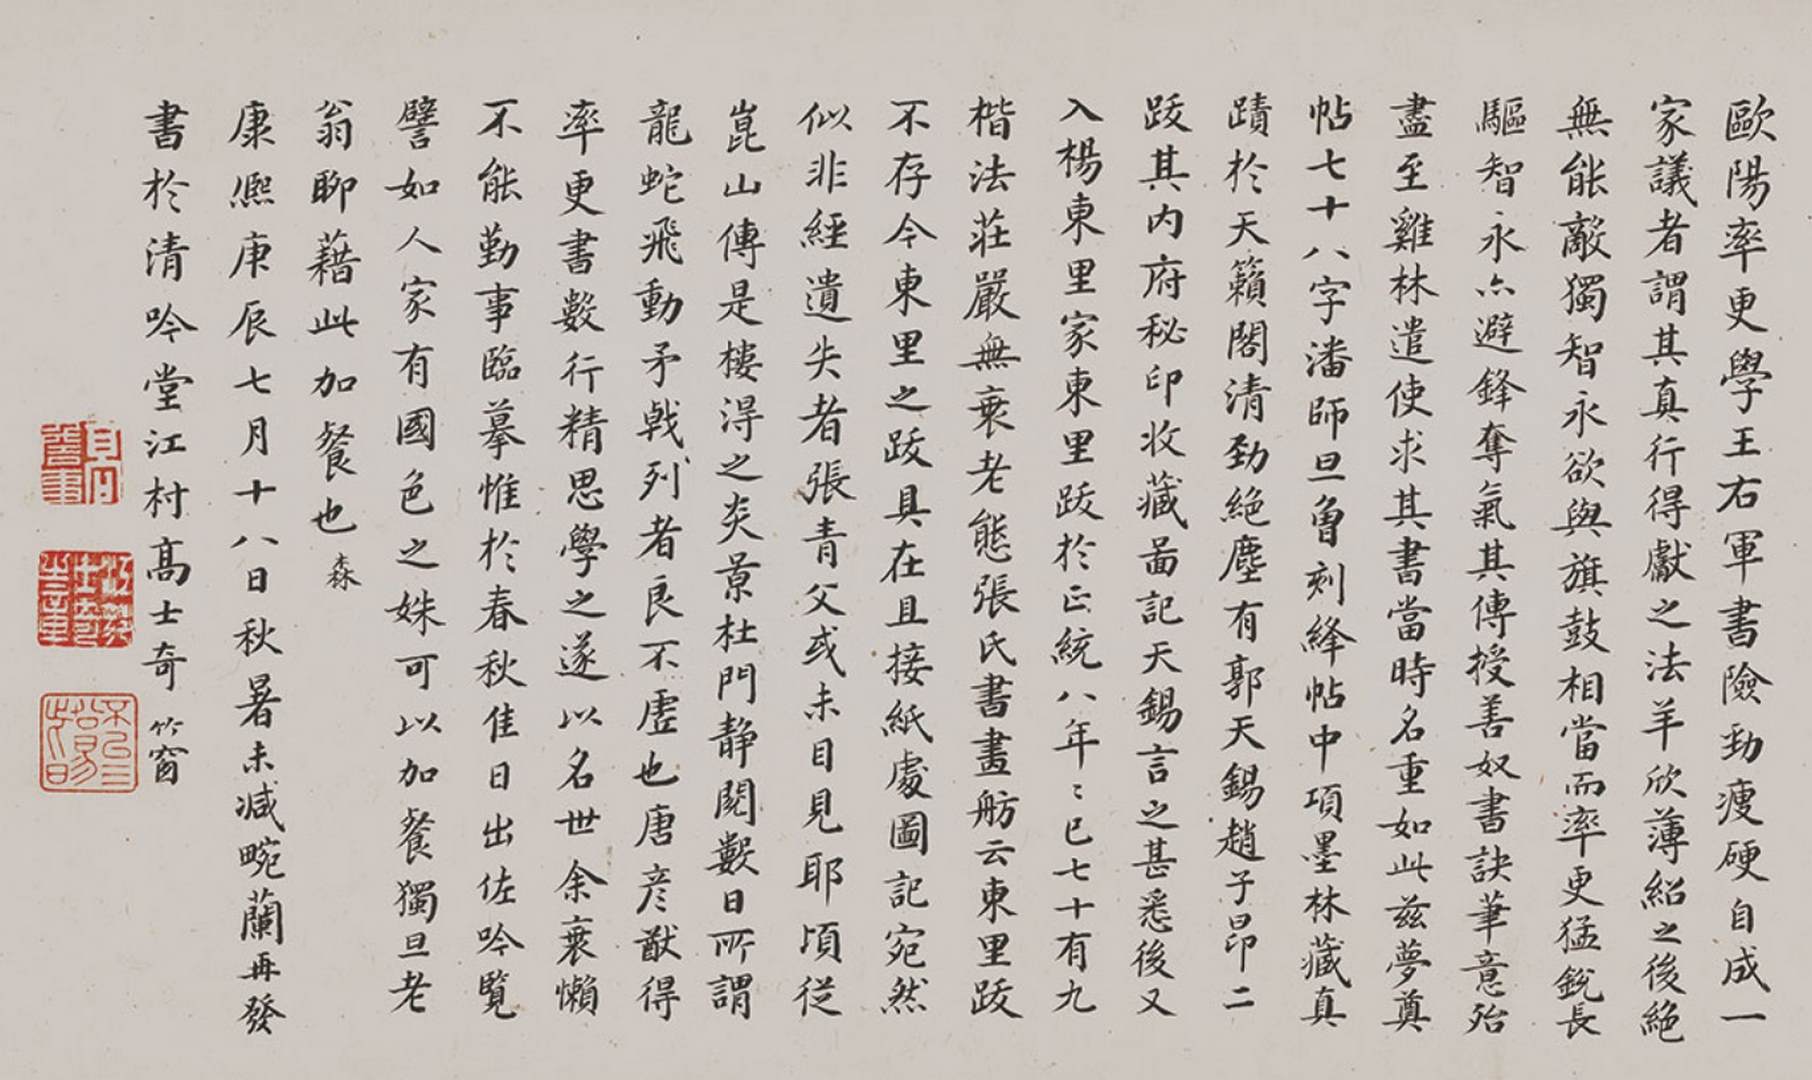 歐陽率更學王右軍書險勁瘦硬自成一
家議者謂其真行得獻之法羊欣薄紹之後絕
無能敵獨智永欲與旗鼓相當而率更猛銳長
驅智永亦避鋒奪氣其傳授善奴書訣筆意殆
盡至雞林遣使求其書當時名重如此茲夢奠
帖七十八字潘師旦曾刻絳帖中項墨林藏真
蹟於天籟閣清勁絕塵有郭天錫趙子昂二
跋其內府秘印收藏啚記天錫言之甚悉後又
入楊東里家東里跋於正統八年〻已七十有九
楷法莊嚴無衰老態張氏書畫舫云東里跋
不存今東里之跋具在且接紙處圖記宛然
似非經遺失者張青父或未目見耶頃從
崑山傳是樓得之炎景杜門静閱數日所謂
龍蛇飛動矛戟列者良不虛也唐彥猷得
率更書數行精思學之遂以名世余衰懶
不能勤事臨摹惟於春秋佳日出佐吟覽
譬如人家有國色之姝可以加餐獨旦老
翁聊藉此加餐也 森
康熙庚辰七月十八日秋暑未減畹蘭再發
書於清吟堂江村高士奇 竹窗